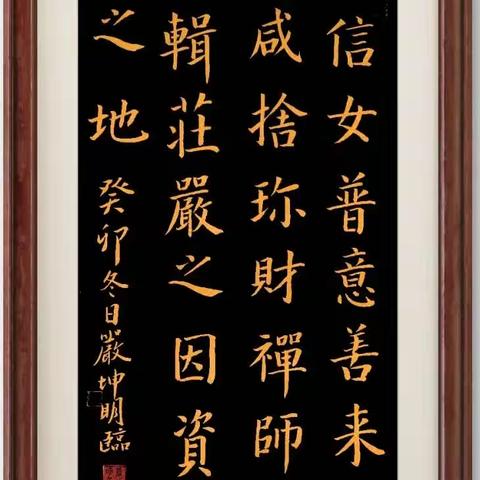 信女普意善来
咸捨珎財禪師
輯莊嚴之因資
之地
癸卯冬日嚴坤明臨